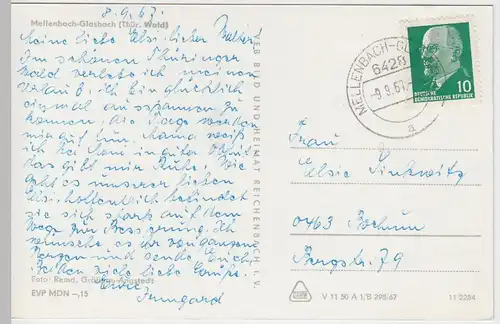 8.9.67.
Mellenbach-Glasbach (Thür. Wald)
Meine liebe Elsi, lieber Walter,
Im schönen Thüringer
Wald verlebe ich meinen
Urlaub. Ich bin glücklich
einmal ausspannen zu
können, die Tage werden
mir gut tun. Mama weiß
ich bei Heini in guter Obhut
das gibt mir Ruhe. Wie
geht es unserer lieben
Elsi, hoffentlich befindet
sie sich stark auf dem
Wege zur Besserung. Ich
wünsche es ihr von ganzem
Herzen und sende Euch
Beiden viele liebe Grüsse.
Eure
Irmgard
Foto: Remd, Gräfinau-Angstedt
EVP MDN –,15
VEB BILD UND HEIMAT REICHENBACH I. V.
MELLENBACH-GL
6428
-9.9.67
a
10
DEUTSCHE
DEMOKRATISCHE REPUBLIK
Frau
Elsie Sinkwitz
0463 Bochum
Bergstr. 79
V 11 50 A 1/B 295/67
11 2284